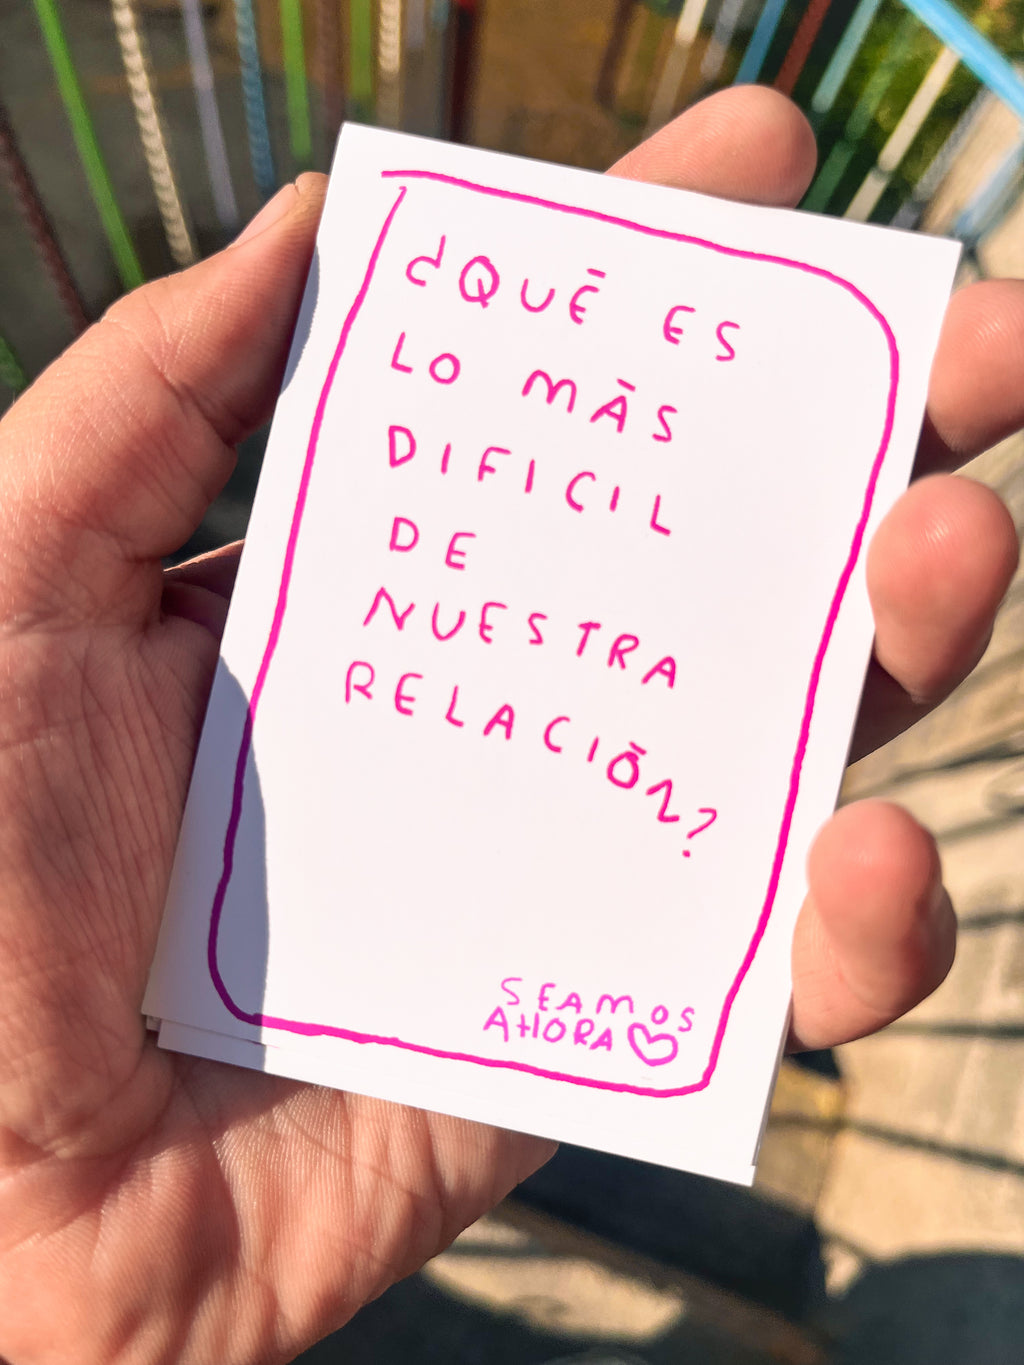 ¿QUÉ ES
LO MÁS
DIFICIL
DE
NUESTRA
RELACIÓN?
SEAMOS
AHORA